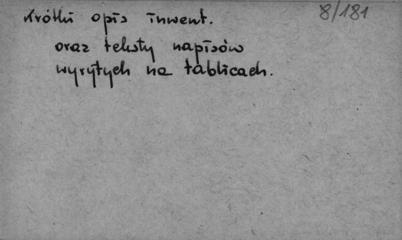 Krótki opis inwent. 8/181
oraz teksty napisów
wyrytych na tablicach.